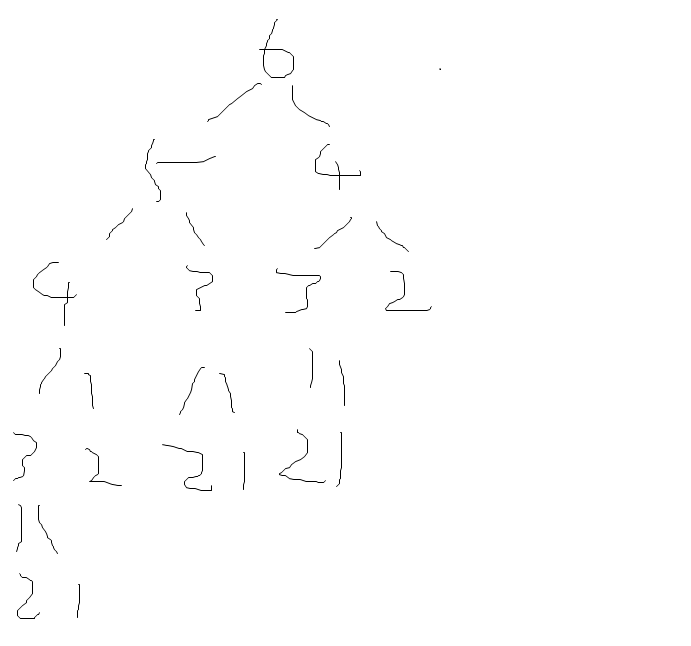 6
5 4
4 3 3 2
3 2 2 1 2 1
2 1